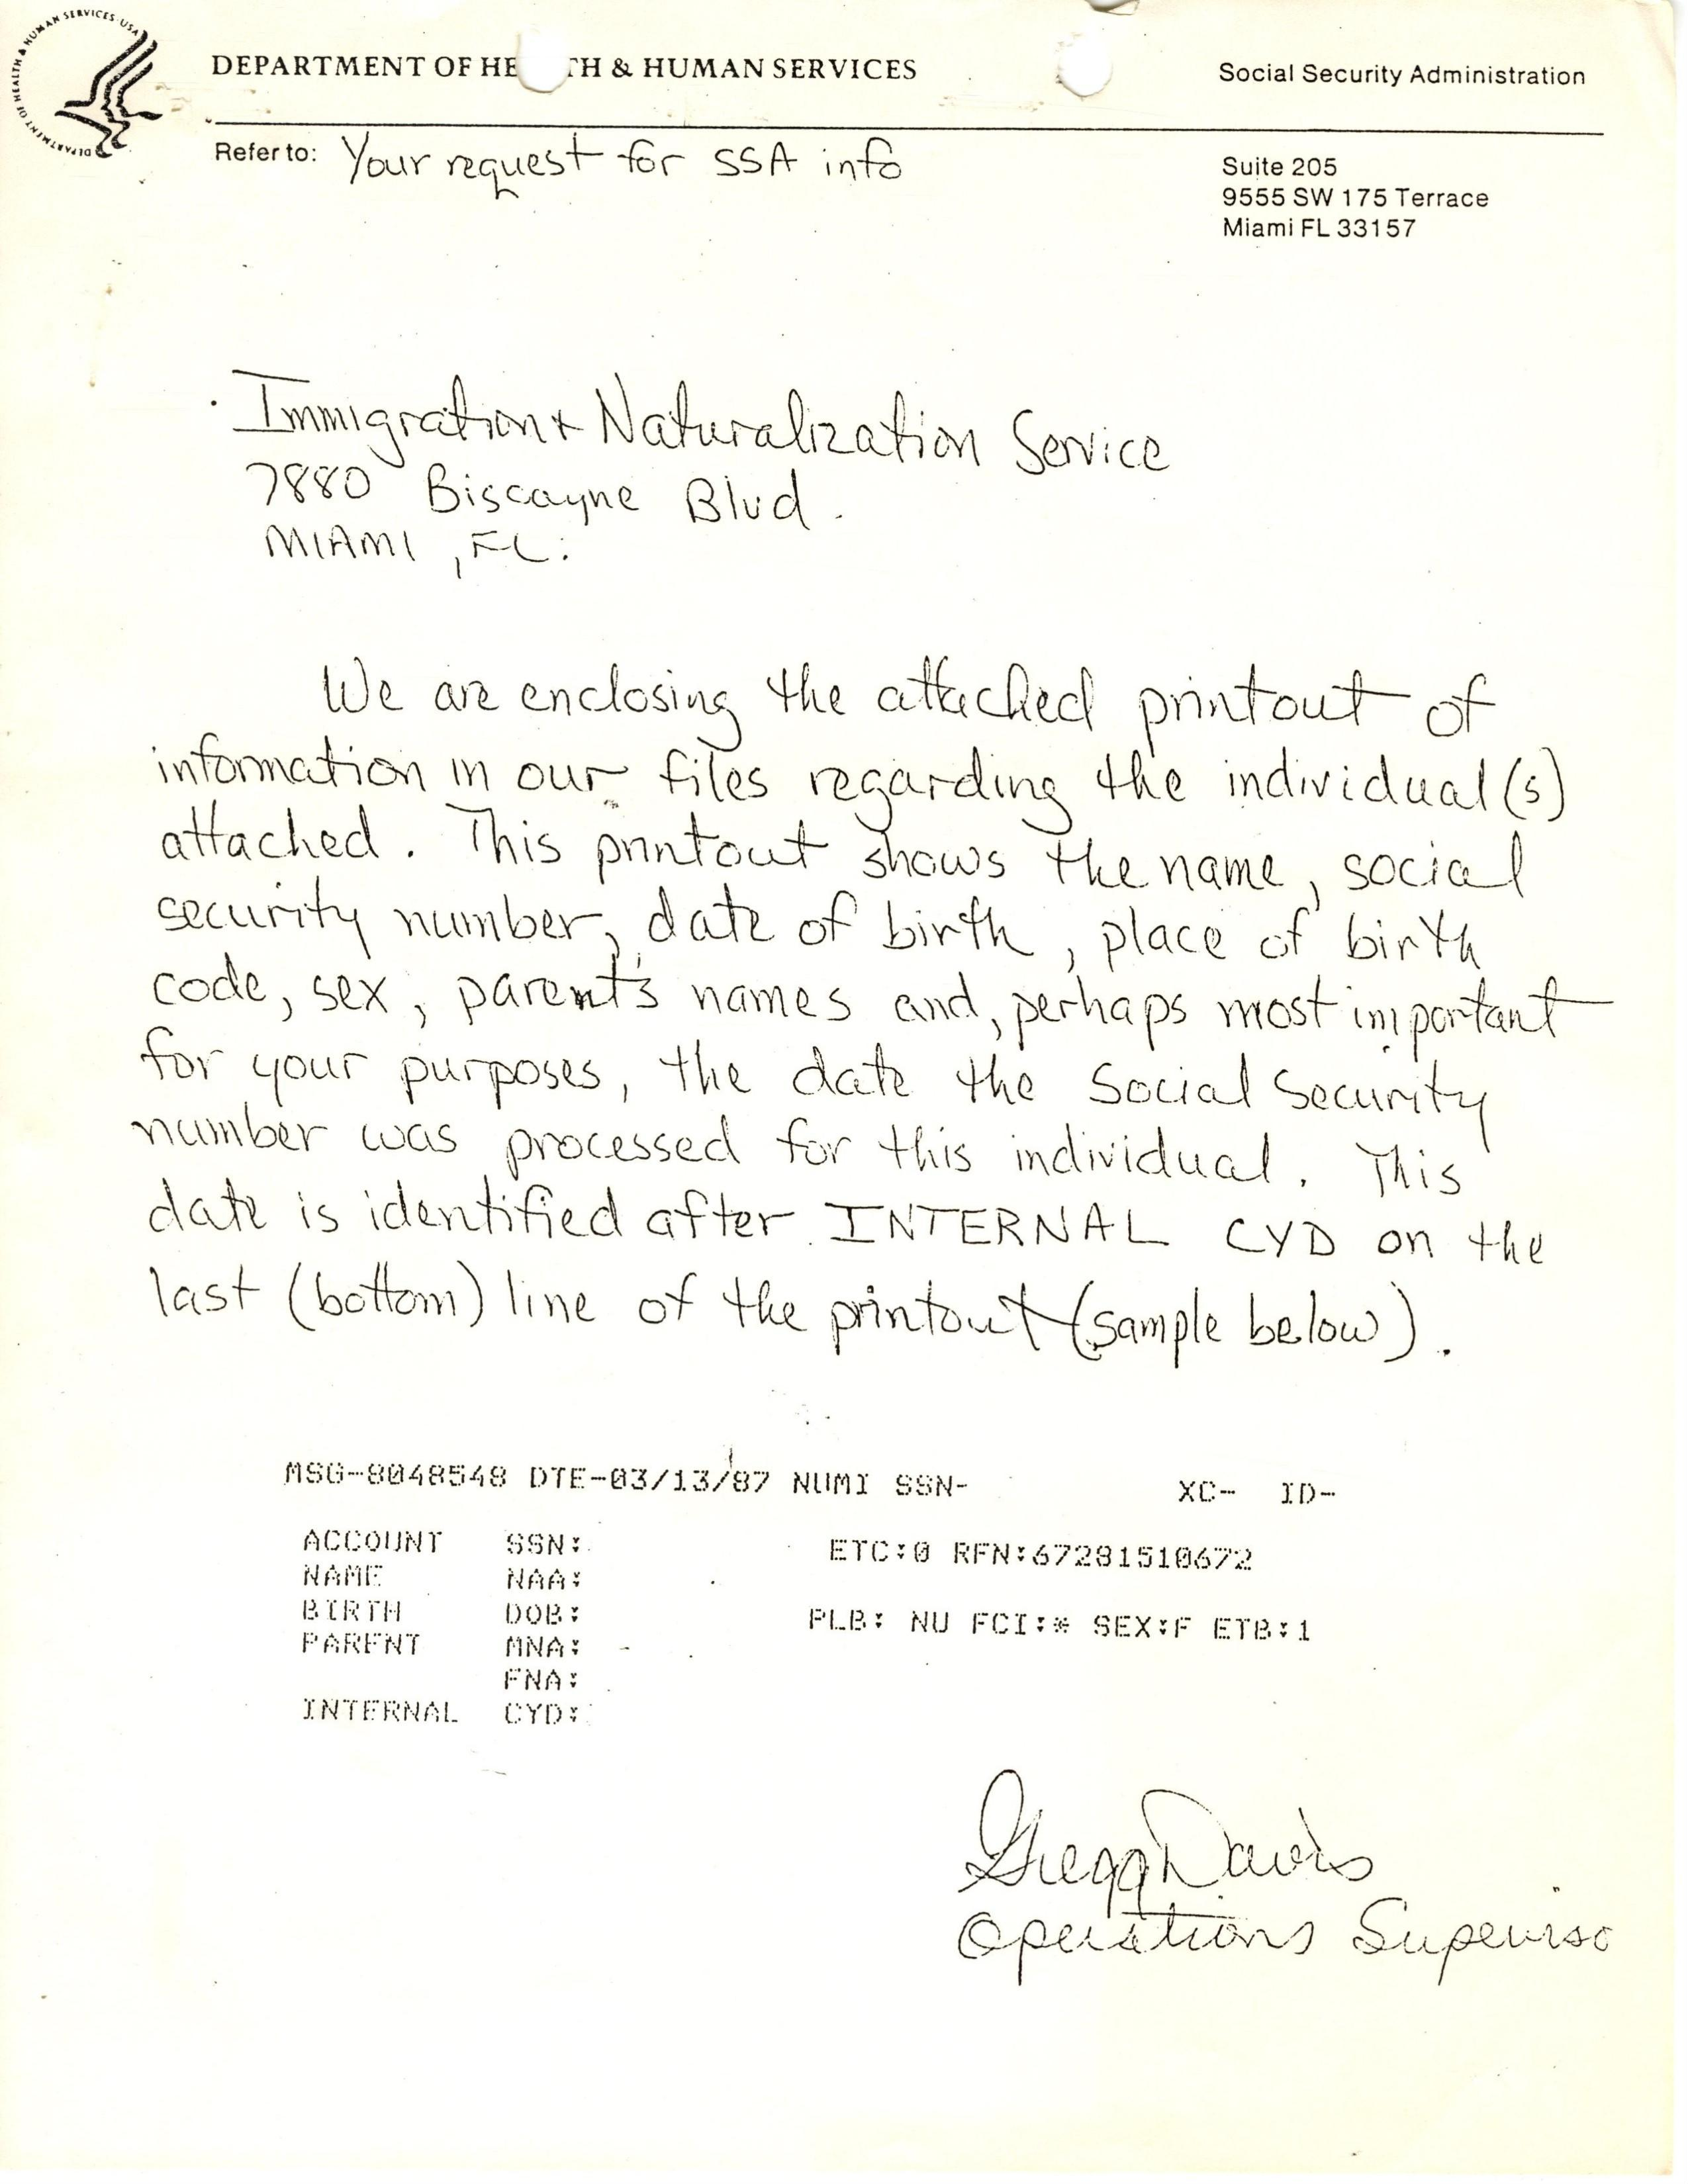 DEPARTMENT OF HEALTH & HUMAN SERVICES · USA
DEPARTMENT OF HE TH & HUMAN SERVICES
Social Security Administration
Refer to: Your request for SSA info
Suite 205
9555 SW 175 Terrace
Miami FL 33157
Immigration + Naturalization Service
7880 Biscayne Blvd.
MIAMI, FL.
We are enclosing the attached printout of
information in our files regarding the individual(s)
attached. This printout shows the name, social
security number, date of birth, place of birth
code, sex, parent's names and, perhaps most important
for your purposes, the date the Social Security
number was processed for this individual. This
date is identified after INTERNAL CYD on the
last (bottom) line of the printout (sample below).
MSG-8048548 DTE-03/13/87 NUMI SSN- XC- ID-
ACCOUNT SSN: ETC:0 RFN:67281510672
NAME NAA:
BIRTH DOB: PLB: NU FCI:* SEX:F ETB:1
PARENT MNA:
FNA:
INTERNAL CYD:
Gregg Davis
Operations Superviso